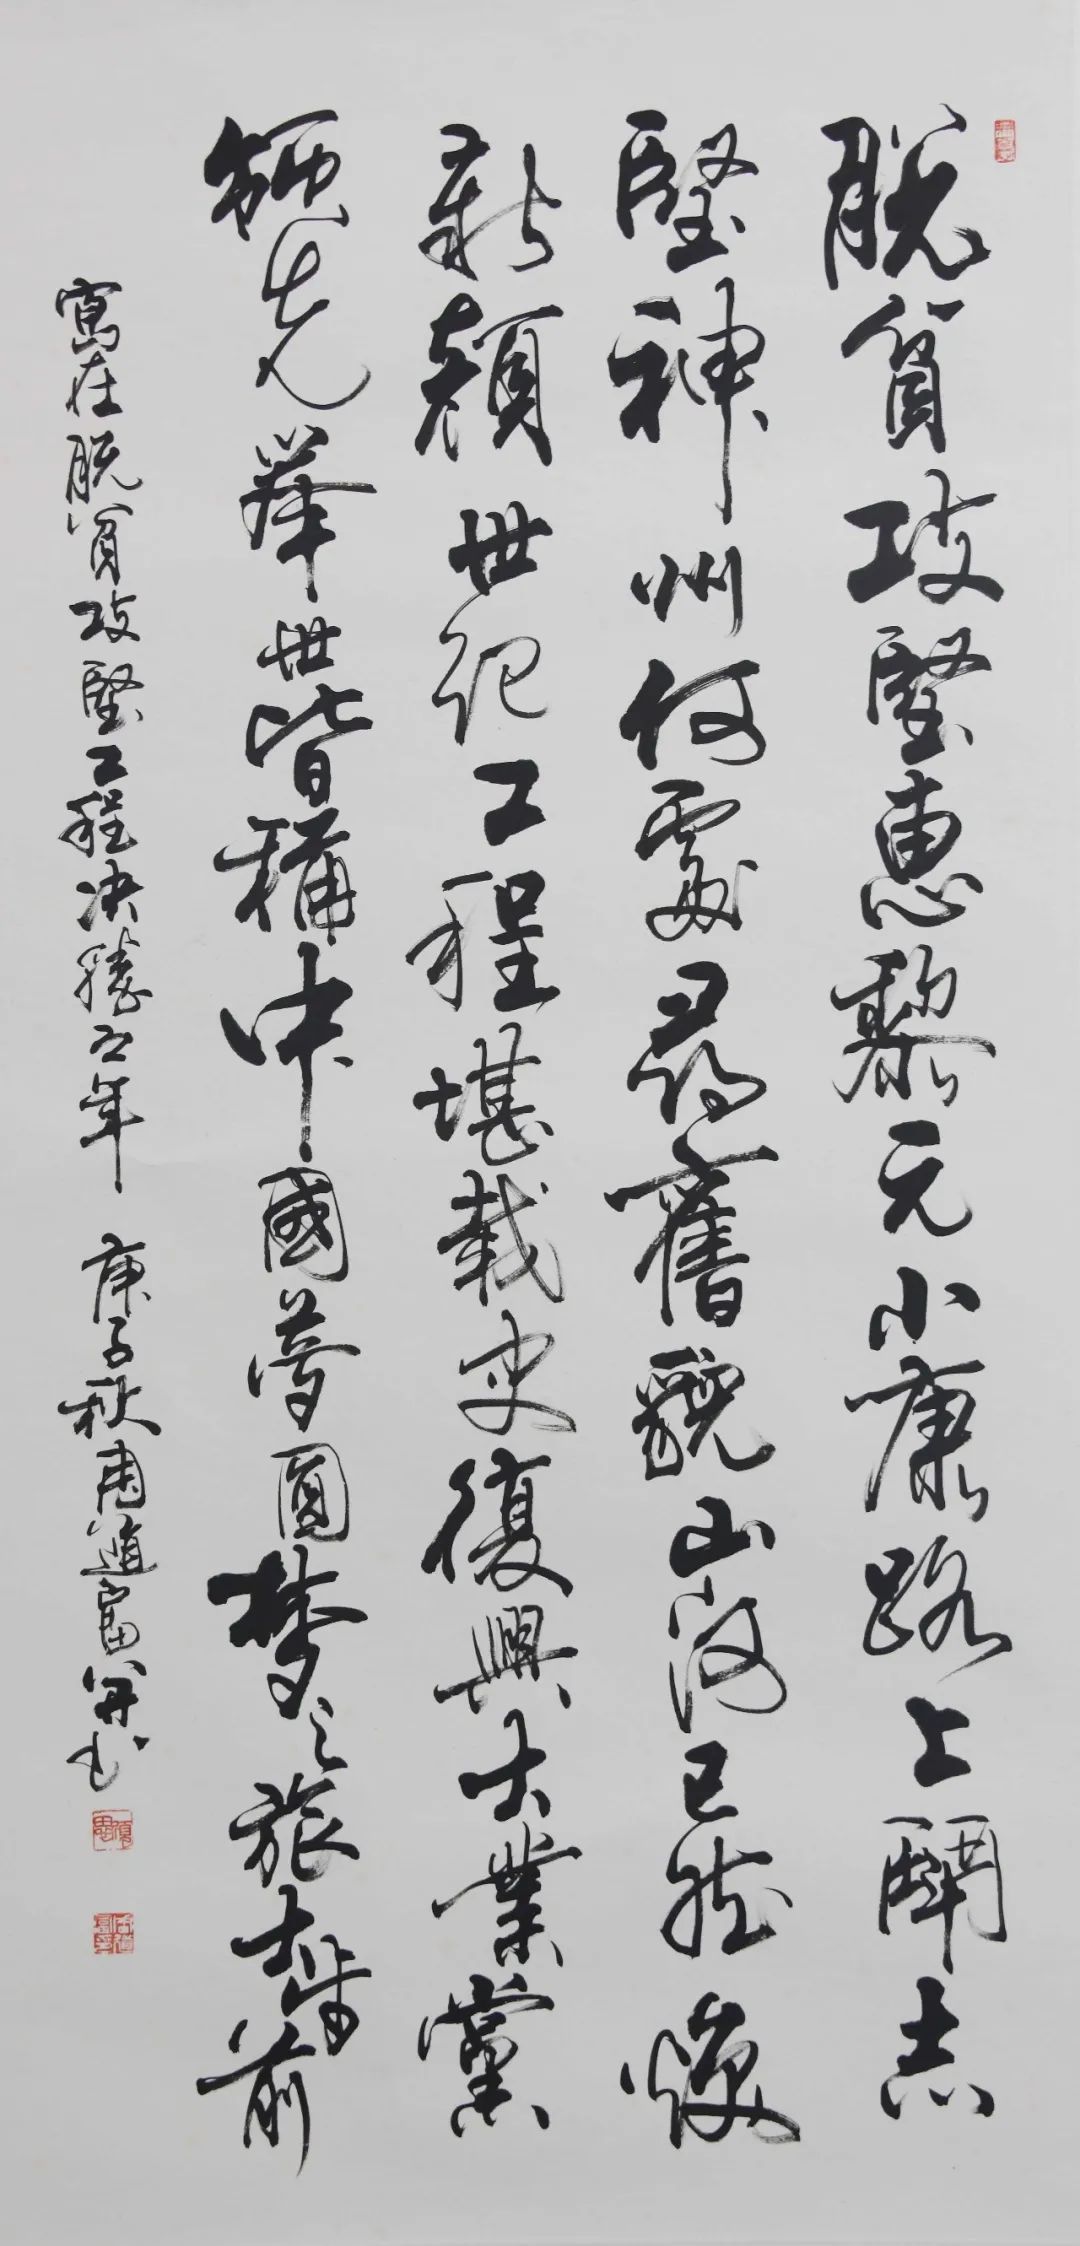 脫貧攻堅惠黎元小康路上鬥志
堅神州何處尋舊貌山河已然煥
新顏世紀工程堪載史復興大業黨
領先舉世皆稱中國夢圓夢之旅大步前
寫在脫貧攻堅工程决勝之年 庚子秋周道富并書